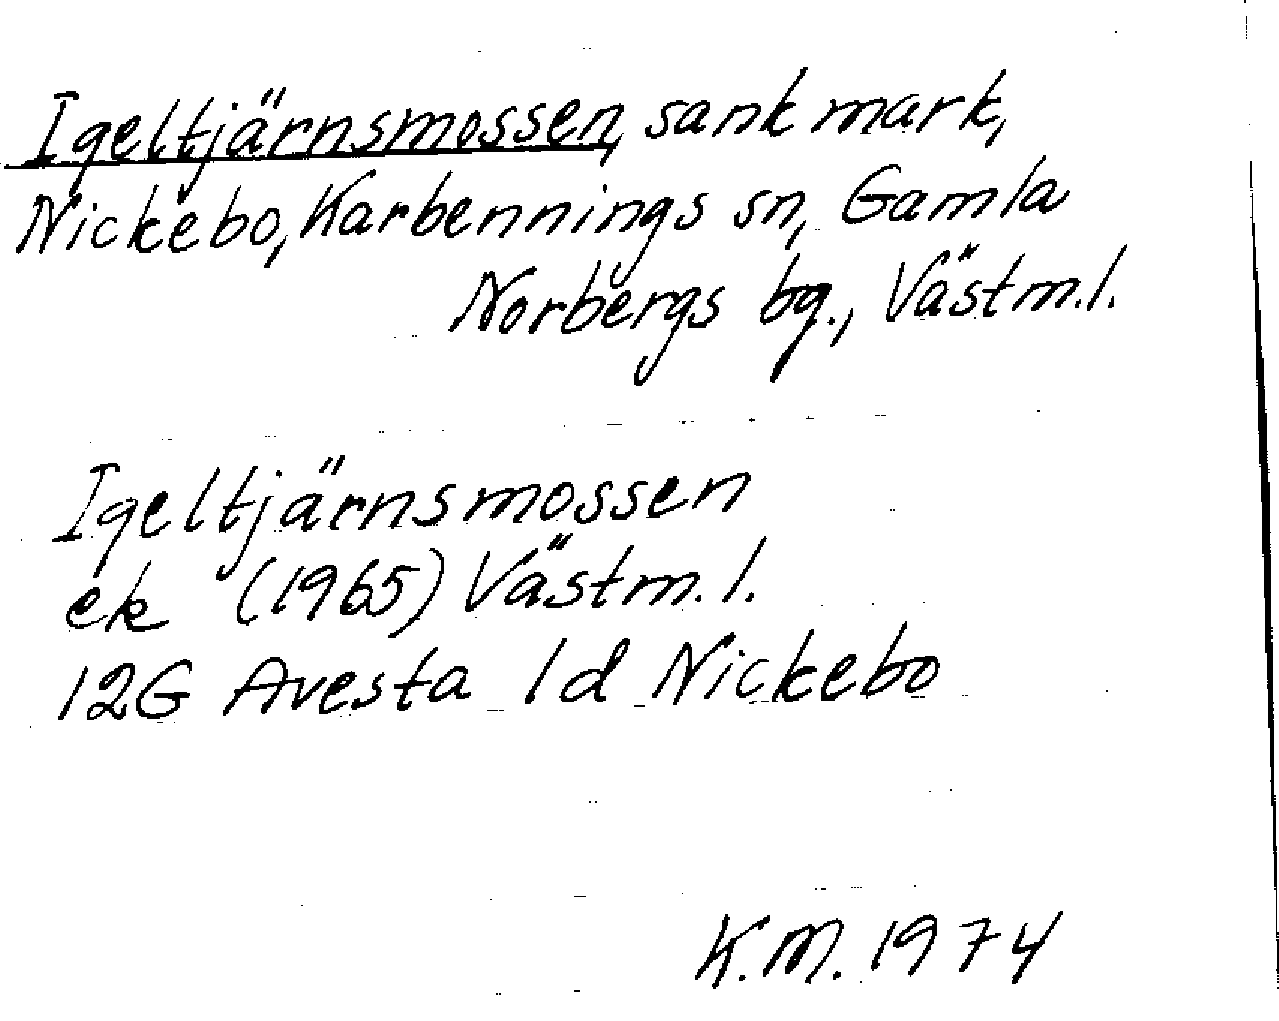 Igeltjärnsmossen, sank mark,
Nickebo, Karbennings sn, Gamla
Norbergs bg., Västm.l.
Igeltjärnsmossen
ek (1965) Västm.l.
12G Avesta 1d Nickebo
K.M. 1974